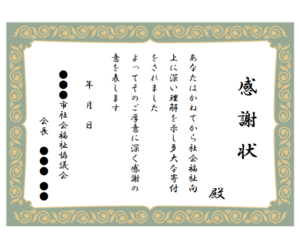 感謝状
殿
あなたはかねてから社会福祉向
上に深い理解を示し多大な寄付
をされました
よってそのご厚意に深く感謝の
意を表します
年 月 日
●●●市社会福祉協議会
会長 ●●● ●●